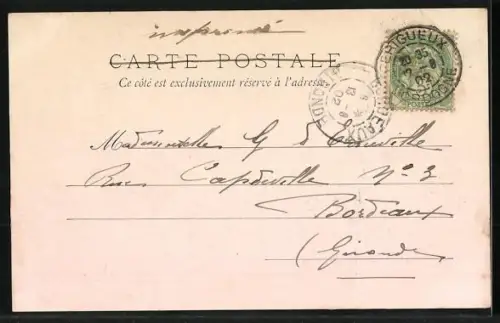 imprimé
CARTE POSTALE
Ce côté est exclusivement réservé à l'adresse
PERIGUEUX
DORDOGNE
02
BORDEAUX
GIRONDE
13
02
POSTE
Mademoiselle G d'
Rue Capdeville N° 3
Bordeaux
(Gironde)